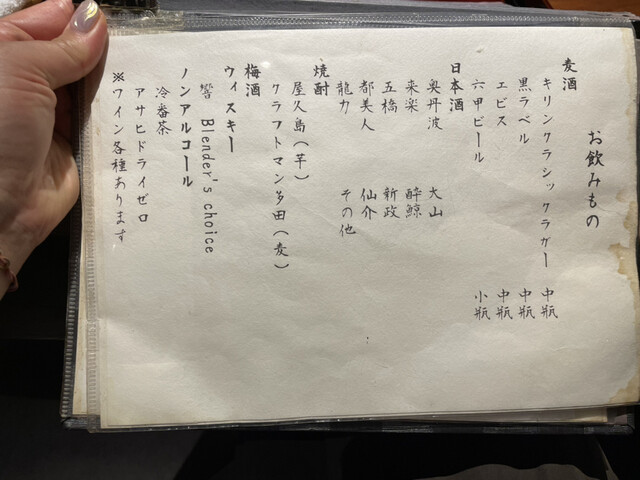 お飲みもの
麦酒
キリンクラシックラガー 中瓶
黒ラベル 中瓶
エビス 中瓶
六甲ビール 小瓶
日本酒
奥丹波 大山
来楽 酔鯨
五橋 新政
都美人 仙介
龍力 その他
焼酎
屋久島(芋)
クラフトマン多田(麦)
梅酒
ウィスキー
響 Blender's choice
ノンアルコール
冷番茶
アサヒドライゼロ
※ワイン各種あります